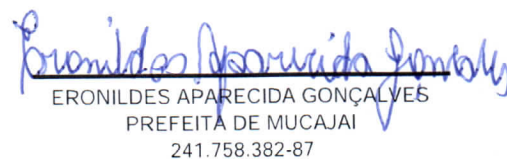 Eronildes Aparecida Gonçalves
ERONILDES APARECIDA GONÇALVES
PREFEITA DE MUCAJAI
241.758.382-87